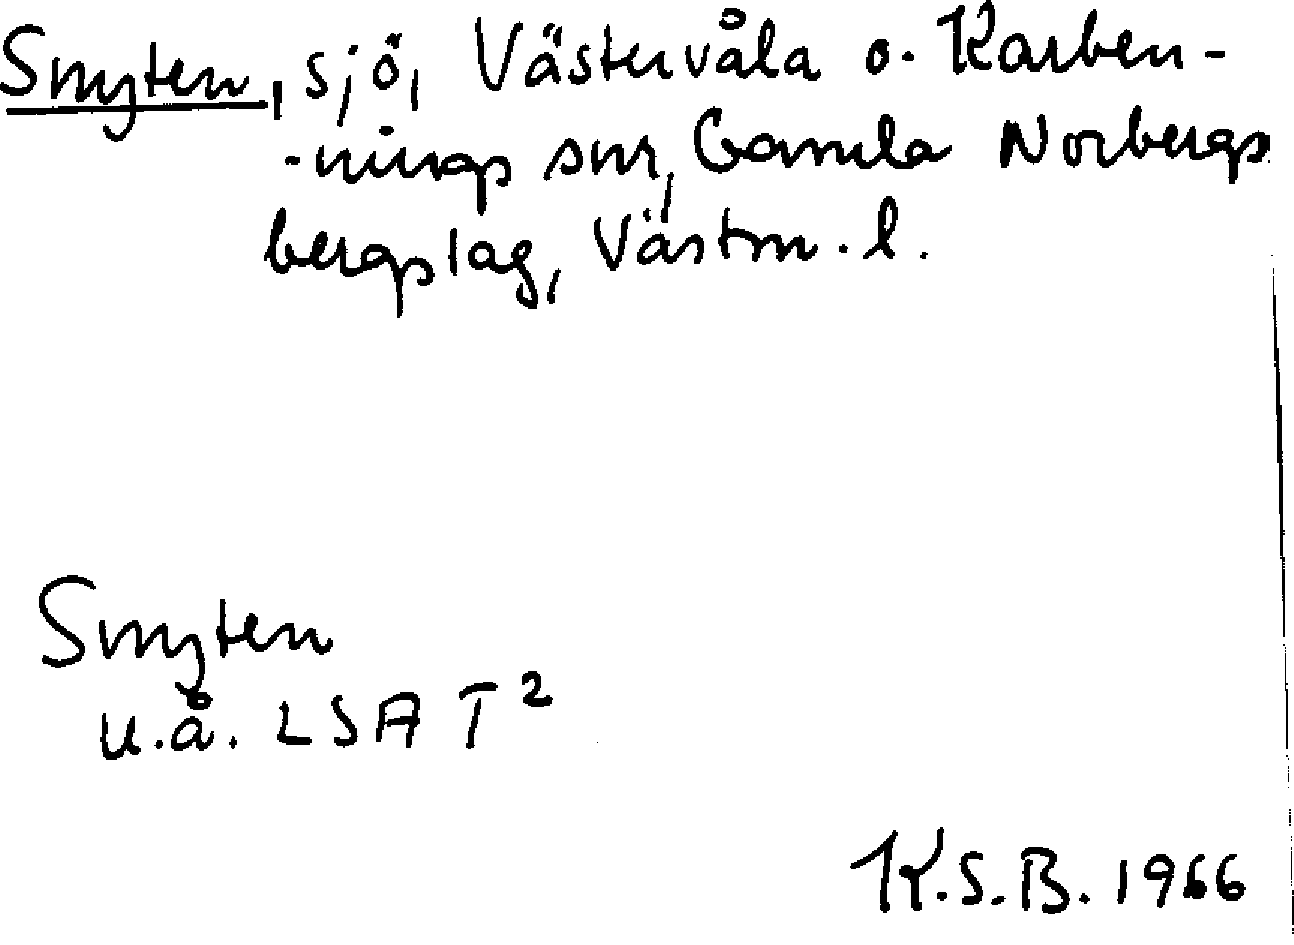 Snyten, sjö, Västervåla o. Karben-
-nings snr, Gamla Norbergs
bergslag, Västm. l.
Snyten
u.å. LSA T²
K.S.B. 1966